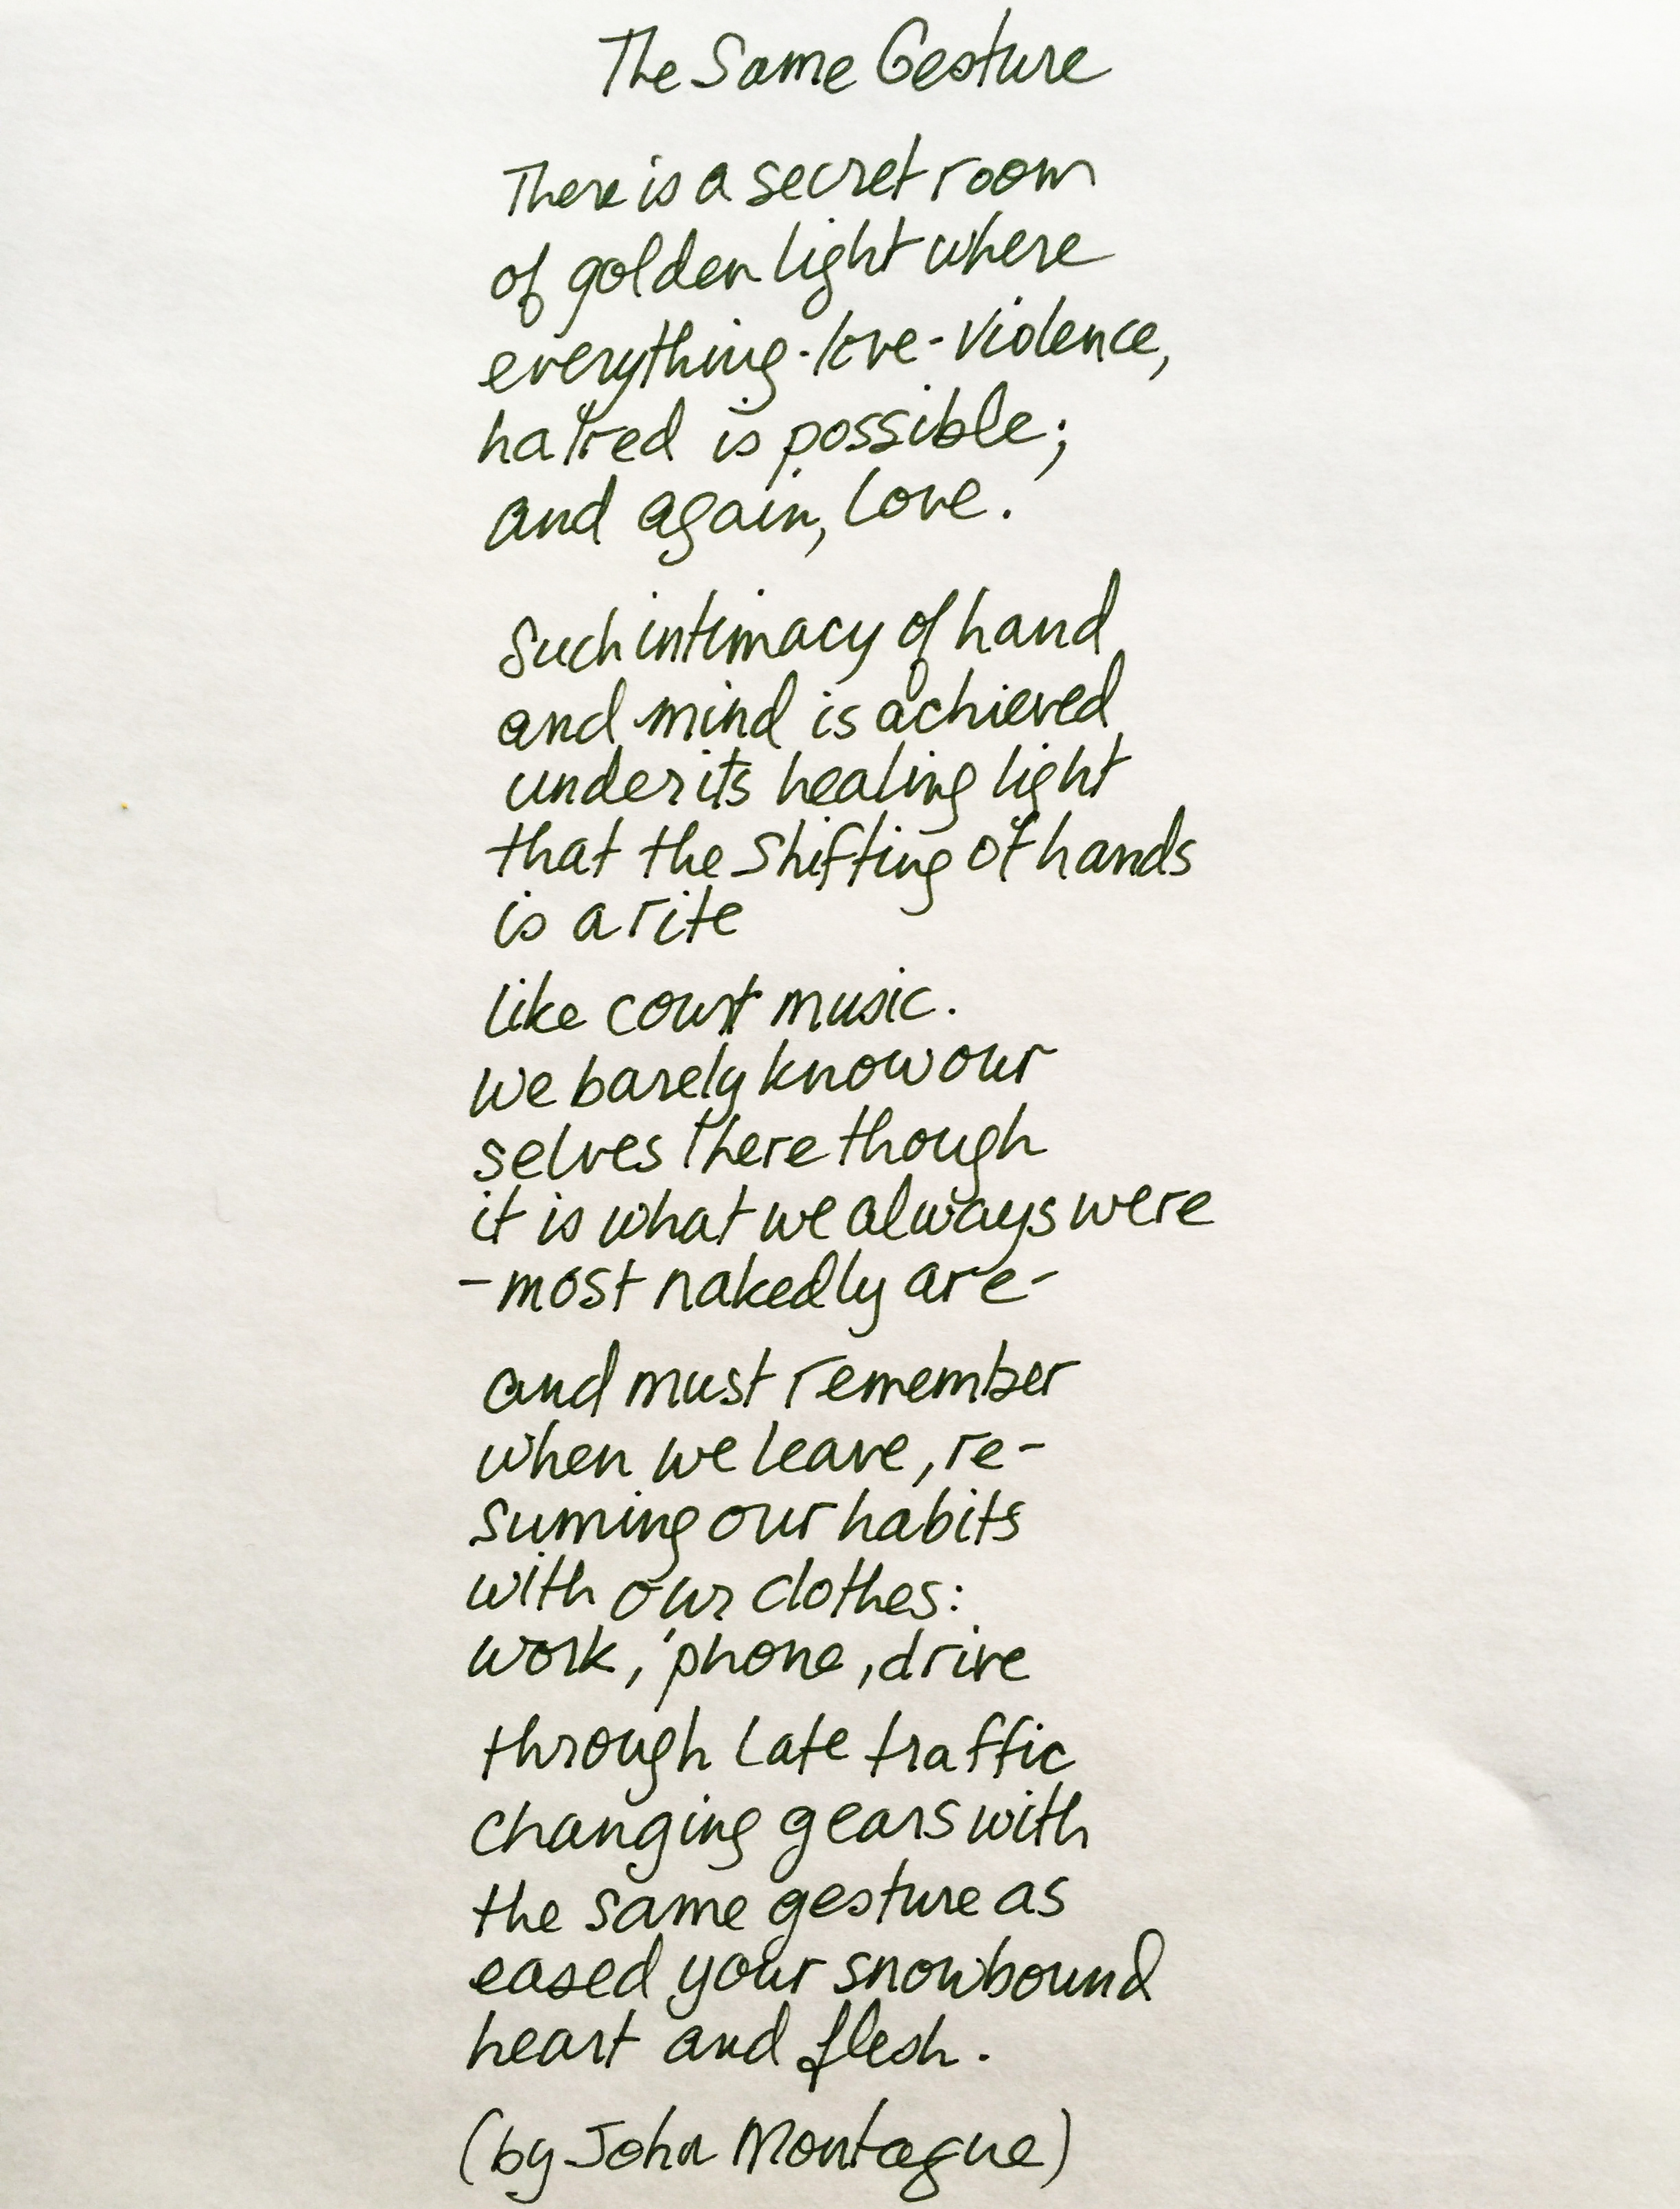 The Same Gesture
There is a secret room
of golden light where
everything - love - violence,
hatred is possible;
and again, love.
Such intimacy of hand
and mind is achieved
under its healing light
that the shifting of hands
is a rite
like court music.
We barely know our
selves there though
it is what we always were
- most nakedly are -
and must remember
when we leave, re-
suming our habits
with our clothes:
work, 'phone, drive
through late traffic
changing gears with
the same gesture as
eased your snowbound
heart and flesh.
(by John Montague)